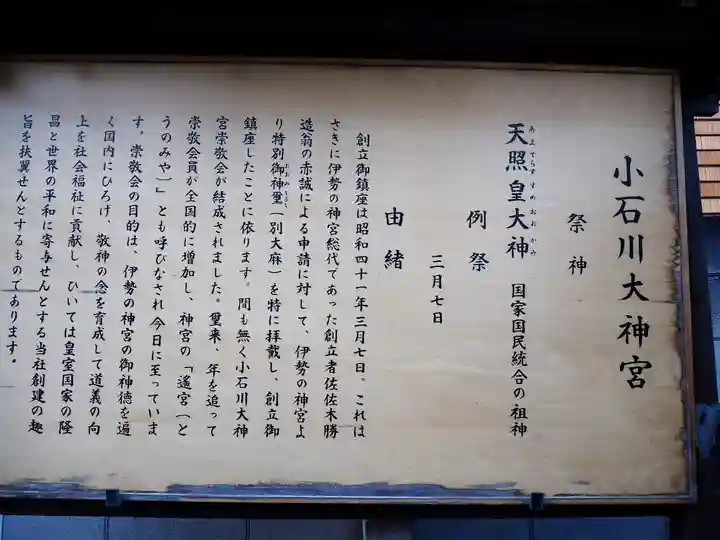 小石川大神宮
祭神
天照皇大神 国家国民統合の祖神
あまてらすすめおおかみ
例祭
三月七日
由緒
創立御鎮座は昭和四十一年三月七日。これは
さきに伊勢の神宮総代であった創立者佐佐木勝
造翁の赤誠による申請に対して、伊勢の神宮よ
り特別御神璽(別大麻)を特に拝戴し、創立御
鎮座したことに依ります。間も無く小石川大神
宮崇敬会が結成されました。爾来、年を追って
崇敬会員が全国的に増加し、神宮の「遙宮(と
うのみや)」とも呼びなされ今日に至っていま
す。崇敬会の目的は、伊勢の神宮の御神徳を遍
く国内にひろげ、敬神の念を育成して道義の向
上を社会福祉に貢献し、ひいては皇室国家の隆
昌と世界の平和に寄与せんとする当社創建の趣
旨を扶翼せんとするものであります。